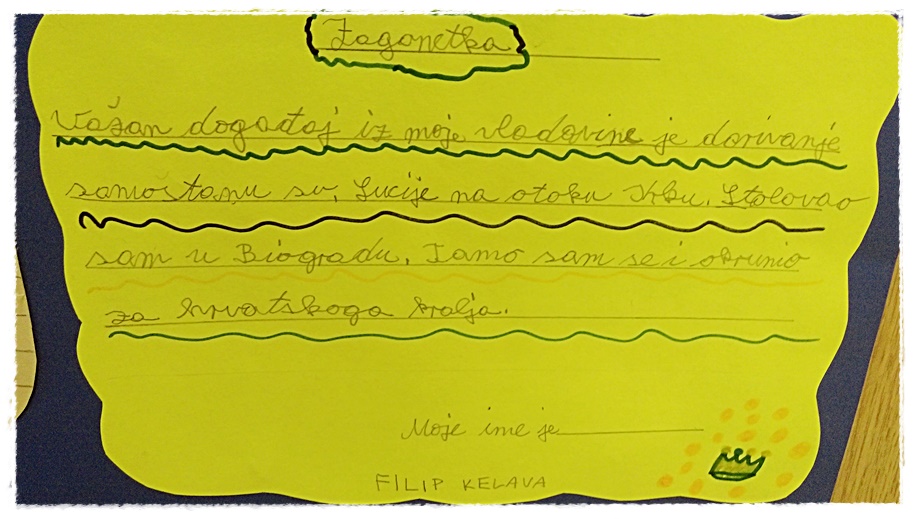 Zagonetka
Važan događaj iz moje vladavine je darivanje
samostanu sv. Lucije na otoku Krku. Stolovao
sam u Biogradu. Tamo sam se i okrunio
za hrvatskoga kralja.
Moje ime je
FILIP KELAVA